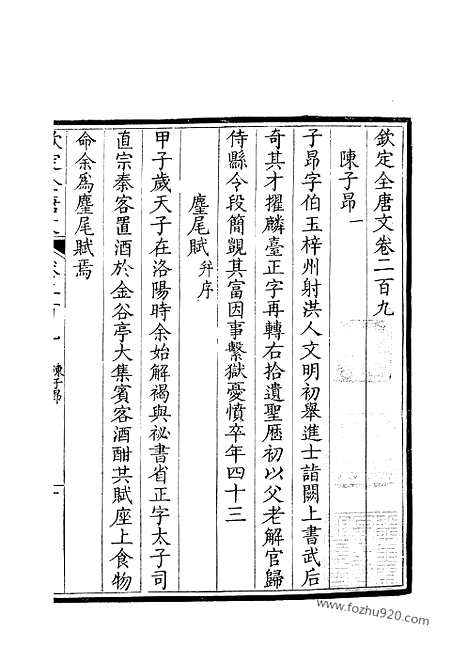 欽定全唐文卷二百九
陳子昂一
子昂字伯玉梓州射洪人文明初舉進士詣闕上書武后
奇其才擢麟臺正字再轉右拾遺聖厯初以父老解官歸
侍縣令段簡覬其富因事繫獄憂憤卒年四十三
麈尾賦并序
甲子歲天子在洛陽時余始解褐與祕書省正字太子司
直宗秦客置酒於金谷亭大集賓客酒酣共賦座上食物
命余為麈尾賦焉
欽定全唐文
陳子昂
www.fozhu920.com